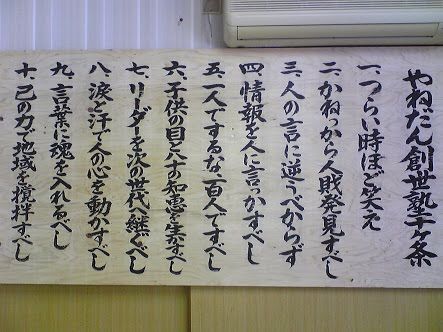 やねだん創世塾十ヶ条
一、つらい時ほど笑え
二、かねっから人財発見すべし
三、人の言に逆うべからず
四、情報を人に言っかすべし
五、一人でするな、百人ですべし
六、子供の目と八十の知恵を生かすべし
七、リーダーを次の世代へ継ぐべし
八、涙と汗で人の心を動かすべし
九、言葉に魂を入れるべし
十、己の力で地域を攪拌すべし